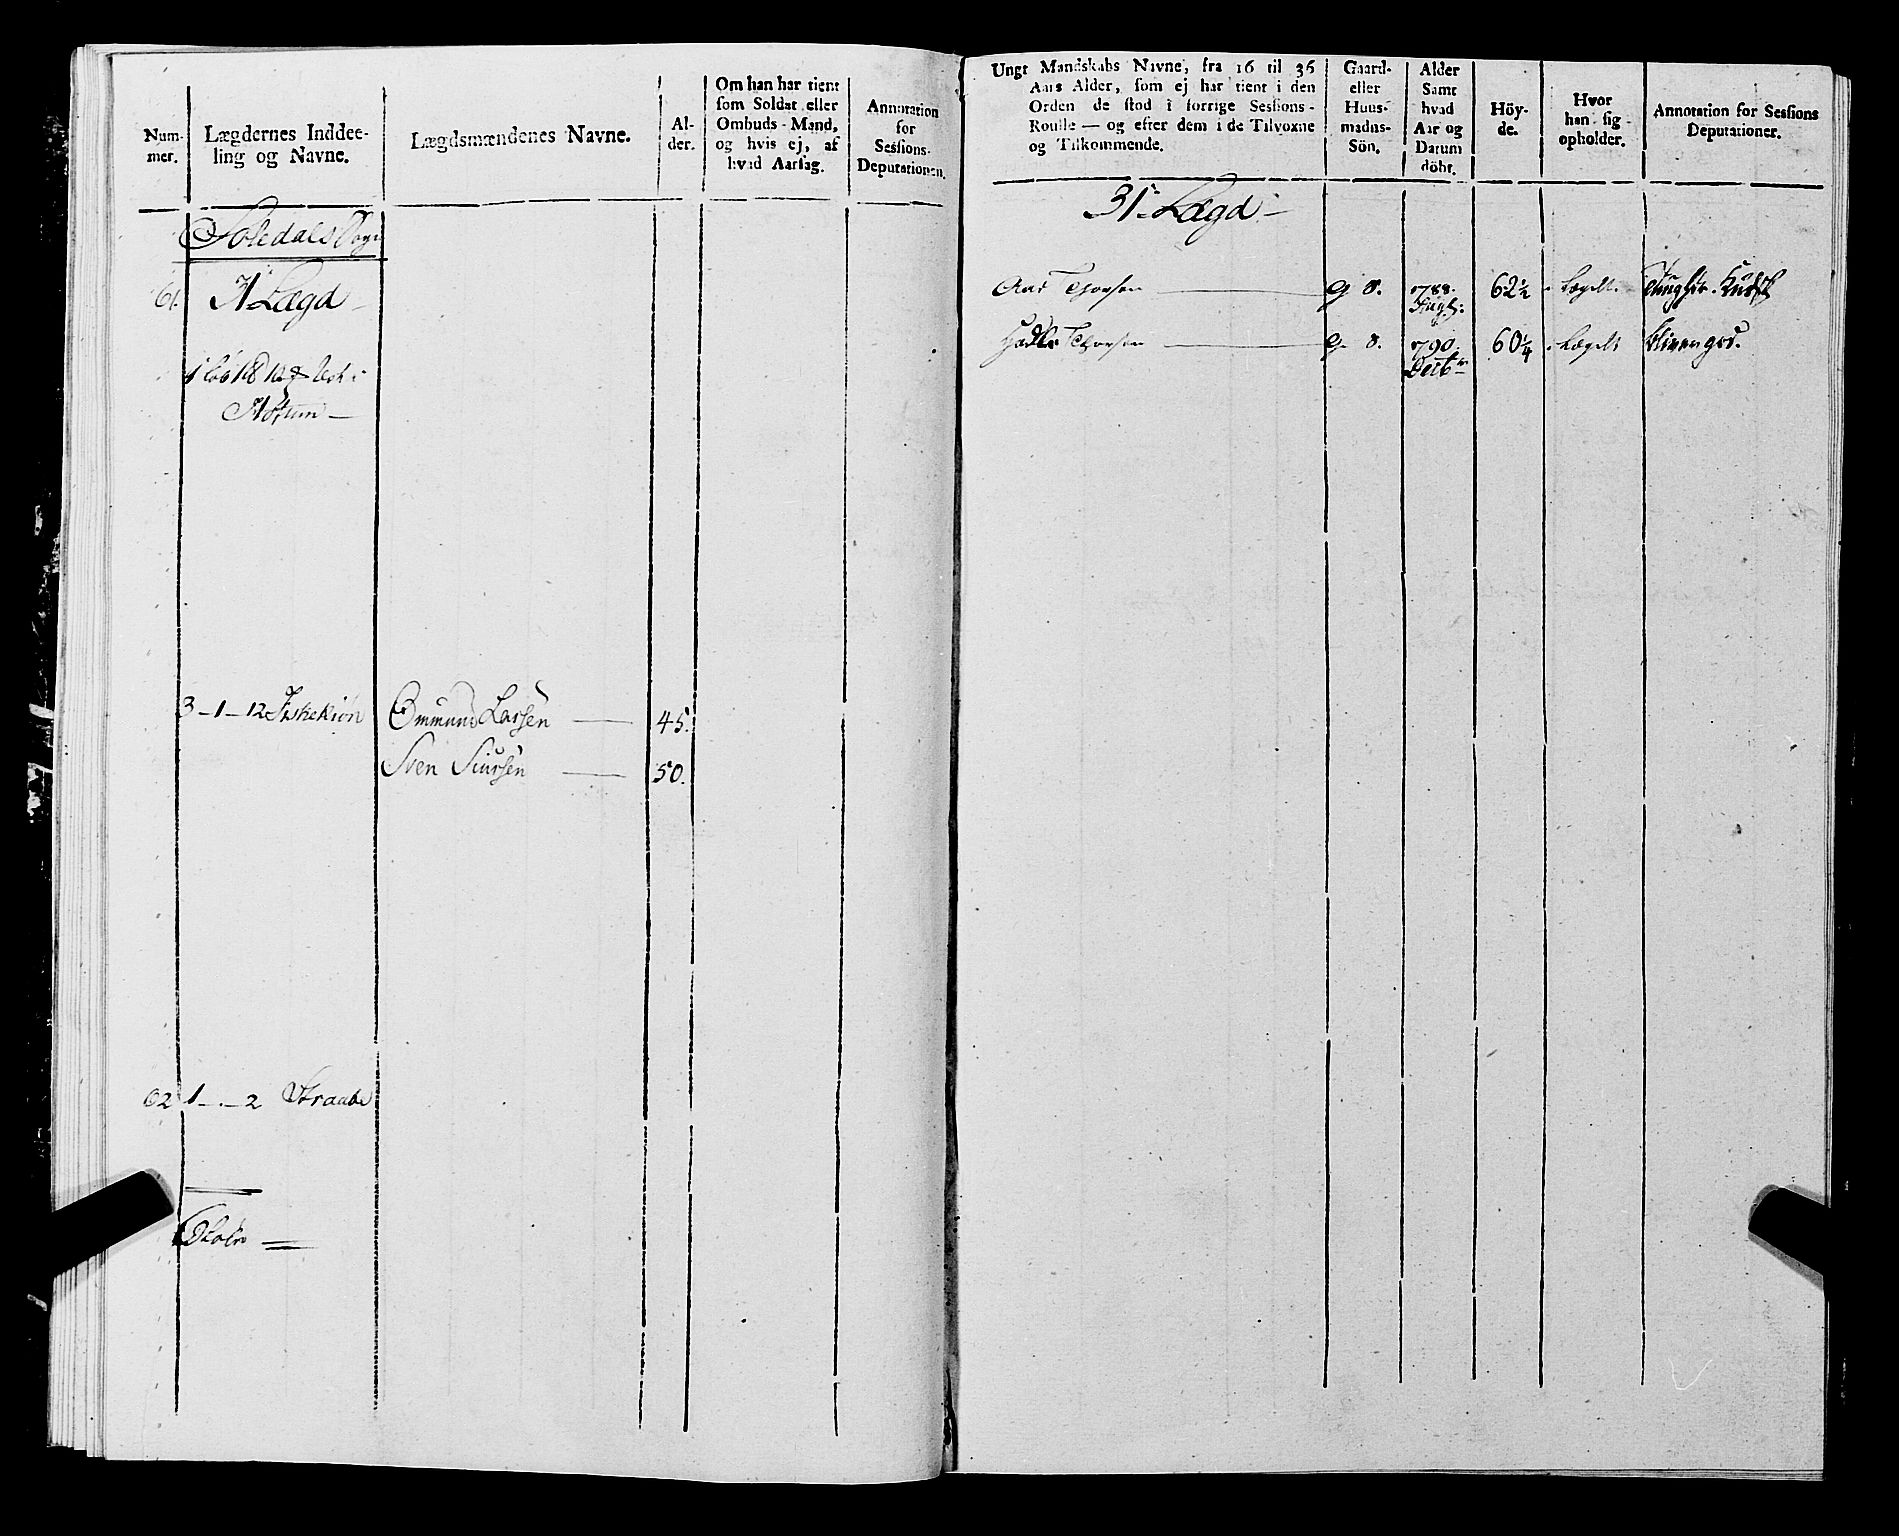 Num-
mer.
Lægdernes Inddee-
ling og Navne.
Lægdsmændenes Navne.
Al-
der.
Om han har tient
som Soldat eller
Ombuds-Mand,
og hvis ej, af
hvad Aarsag.
Annotation
for
Sessions-
Deputationen.
61.
31 Lægd
3-1-12 Fiskekiøn
Ommund Larsen 45.
Sven Siursen 50.
62 1-.-2 Straabe
Ungt Mandskabs Navne, fra 16 til 36
Aars Alder, som ej har tient i den
Orden de stod i forrige Sessions-
Roulle — og efter dem i de Tilvoxne
og Tilkommende.
Gaard-
eller
Huus-
mands-
Sön.
Alder
Samt
hvad
Aar og
Datum
döbt.
Höy-
de.
Hvor
han sig
opholder.
Annotation for Sessions
Deputationer.
31 Lægd
Thorsen G S. 1788. 62½ i Lægdet.
Thorsen G S. 1790. 60¼ i Lægdet